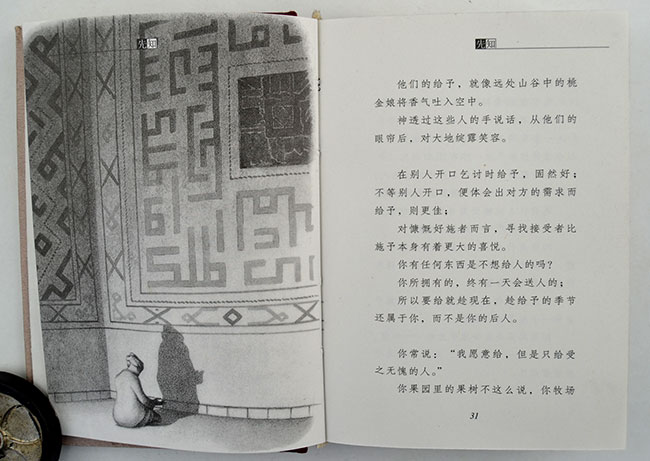 先知
先知
他们的给予，就像远处山谷中的桃
金娘将香气吐入空中。
神透过这些人的手说话，从他们的
眼帘后，对大地绽露笑容。
在别人开口乞讨时给予，固然好；
不等别人开口，便体会出对方的需求而
给予，则更佳；
对慷慨好施者而言，寻找接受者比
施予本身有着更大的喜悦。
你有任何东西是不想给人的吗？
你所拥有的，终有一天会送人的；
所以要给就趁现在，趁给予的季节
还属于你，而不是你的后人。
你常说：“我愿意给，但是只给受
之无愧的人。”
你果园里的果树不这么说，你牧场
31